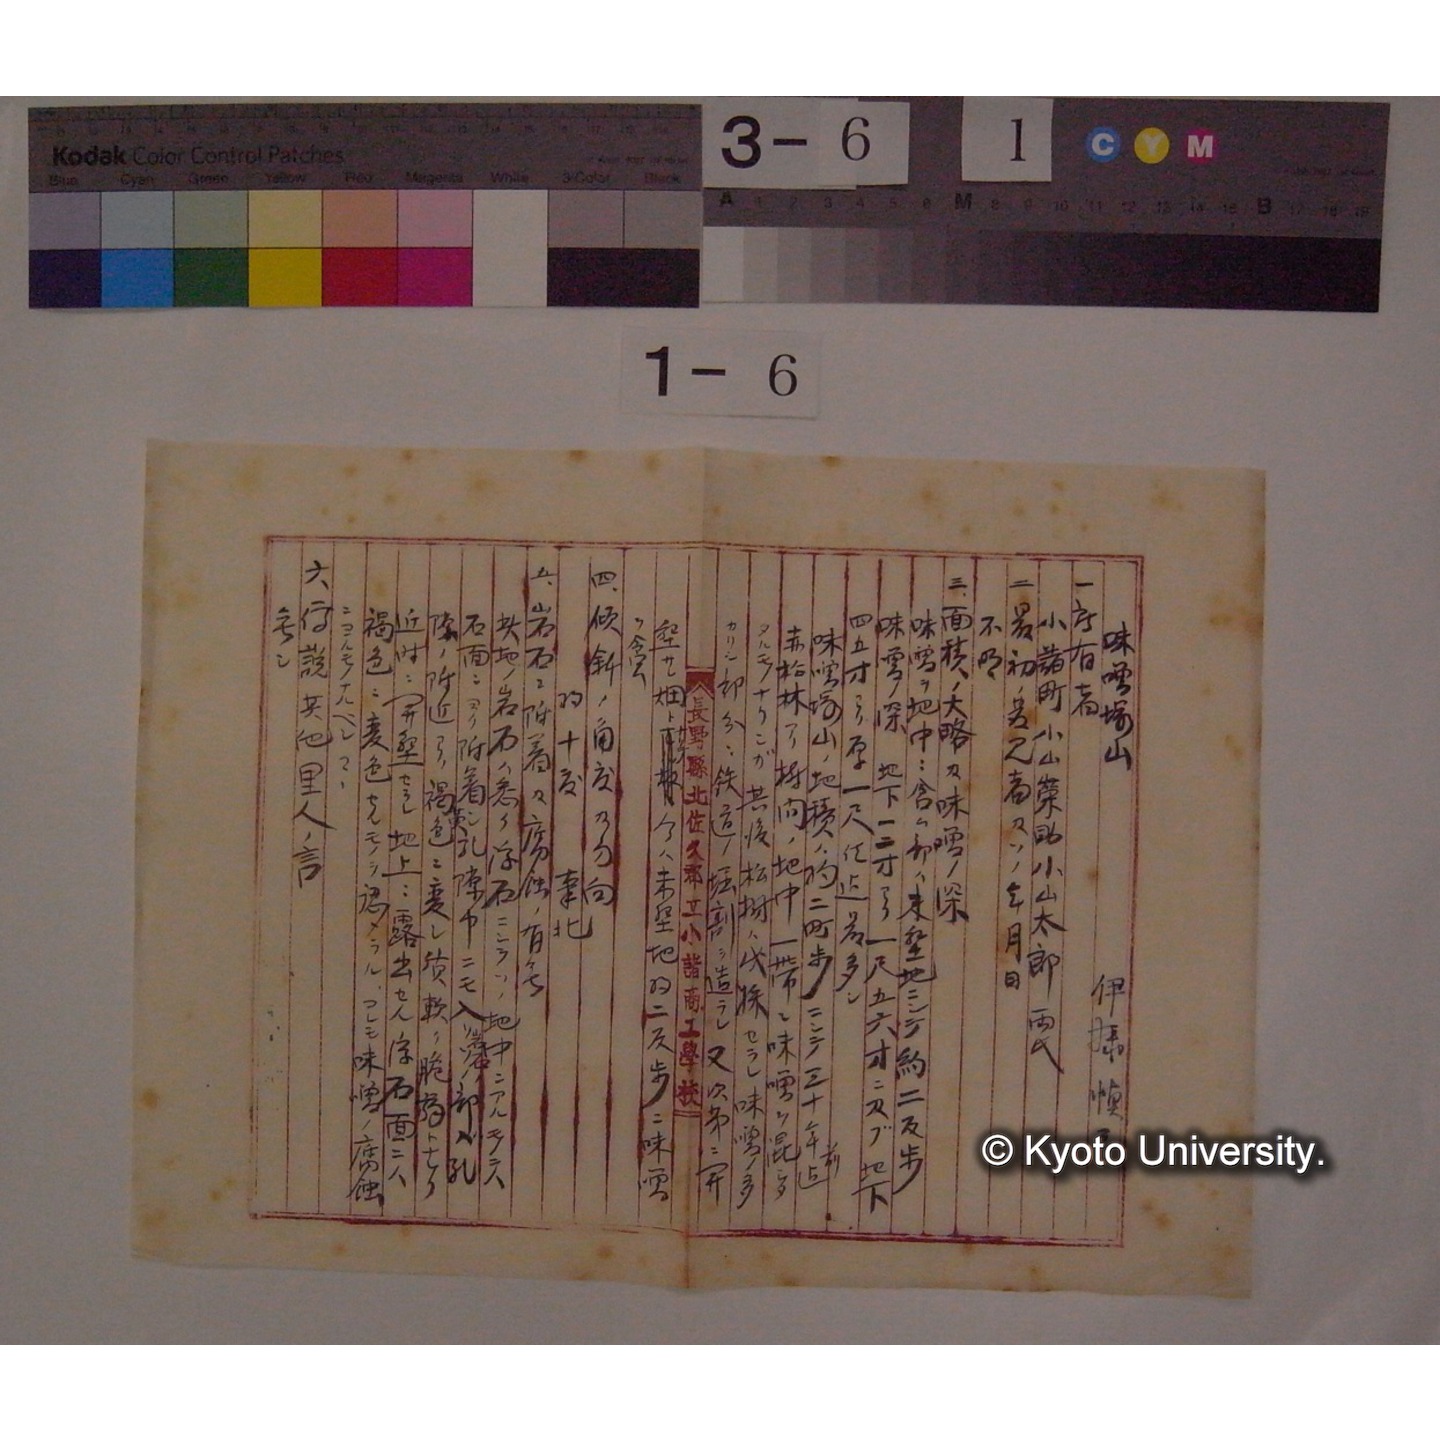 Kodak Color Control Patches
Blue Cyan Green Yellow Red Magenta White 3-Color Black
3-6 1
C Y M
A 1 2 3 4 5 6 M 8 9 10 11 12 13 14 15 B 17 18 19
1-6
味噌塚山
伊藤
一、所有者
小諸町 小山榮助小山太郎 両氏
二、最初ノ発見者及ソノ年月日
不明
三、面積ノ大略及味噌ノ深
味噌ヲ地中ニ含ム部ハ未墾地ニシテ約二反歩
味噌ノ深 地下一二寸ヨリ一尺五六寸ニ及ブ 地下
四五寸ヨリ厚一尺位迄最多シ
味噌塚山ノ地積ハ約二町歩ニシテ三十年前迄
赤松林アリ樹間ノ地中一帯ニ味噌ヲ混ゼ
タルモノナリシガ其後松樹ハ伐採セラレ味噌ノ多
カリシ部分ニ鉄道ノ堀割ヲ造ラレ又次第ニ開
墾サレ畑ト 今ハ未墾地約二反歩ニ味噌
ヲ含ム
長野縣北佐久郡立小諸商工學校
四、傾斜ノ角度及方向
約十度 東北
五、岩石ニ附着及腐蝕ノ有無
此地ノ岩石ハ悉ク浮石ニシテソノ地中ニアルモノニハ
石面ニヨリ附着シ孔隙中ニモ入 ノ部ガ孔
隙ノ附近ヨリ褐色ニ変シ質軟ク脆弱トナリ
近時ニ開墾セラレ地上ニ露出セル浮石面ニハ
褐色ニ変色セルモノヲ認メラル、コレモ味噌ノ腐蝕
ニヨルモノナルベシ
六、伝説其他里人ノ言
無シ
© Kyoto University.